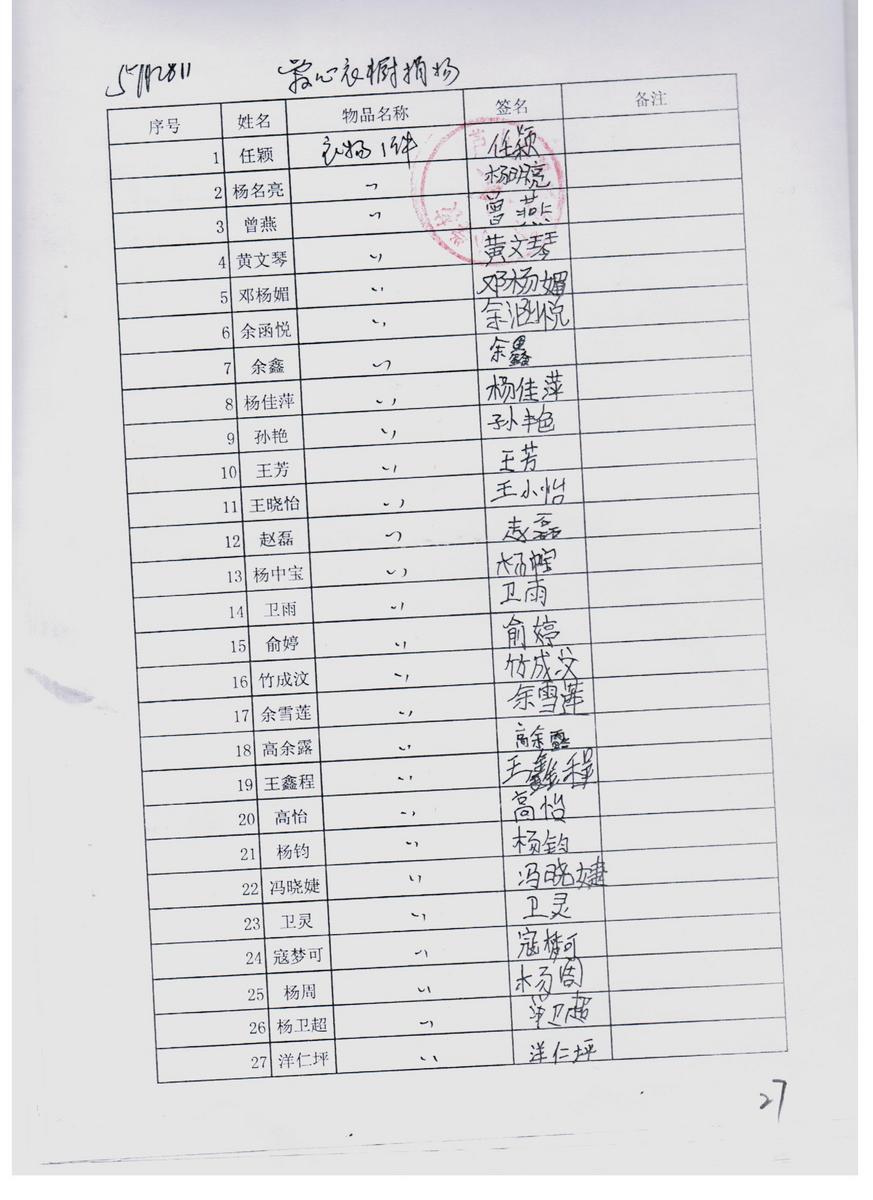 5月28日 爱心衣橱捐物
序号 姓名 物品名称 签名 备注
1 任颖 衣物1件 任颖
2 杨名亮 〃 杨明亮
3 曾燕 〃 曾燕
4 黄文琴 〃 黄文琴
5 邓杨媚 〃 邓杨媚
6 余函悦 〃 余涵悦
7 余鑫 〃 余鑫
8 杨佳萍 〃 杨佳萍
9 孙艳 〃 孙艳
10 王芳 〃 王芳
11 王晓怡 〃 王小怡
12 赵磊 〃 赵磊
13 杨中宝 〃
14 卫雨 〃 卫雨
15 俞婷 〃 俞婷
16 竹成汶 〃 竹成汶
17 余雪莲 〃 余雪莲
18 高余露 〃 高余露
19 王鑫程 〃 王鑫程
20 高怡 〃 高怡
21 杨钧 〃 杨钧
22 冯晓婕 〃 冯晓婕
23 卫灵 〃 卫灵
24 寇梦可 〃 寇梦可
25 杨周 〃 杨周
26 杨卫超 〃 卫超
27 洋仁坪 〃 洋仁坪
27